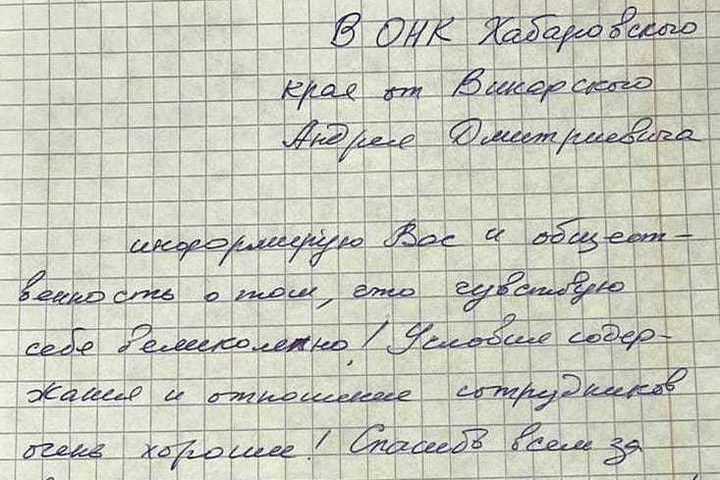 В ОНК Хабаровского
края от Викарского
Андрея Дмитриевича
информирую Вас и общест-
венность о том, что чувствую
себя великолепно! Условия содер-
жания и отношение сотрудников
очень хорошие! Спасибо всем за